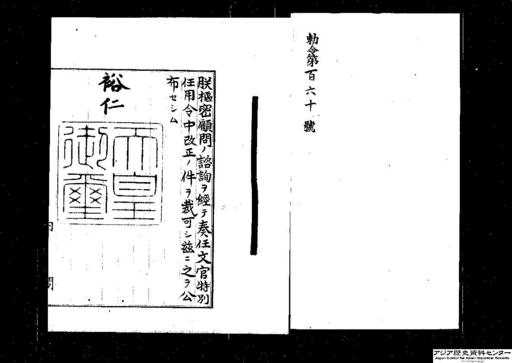 勅令第百六十號
朕樞密顧問ノ諮詢ヲ經テ奏任文官特別
任用令中改正ノ件ヲ裁可シ茲ニ之ヲ公
布セシム
裕仁
天皇
御璽
内閣
アジア歴史資料センター
Japan Center for Asian Historical Records